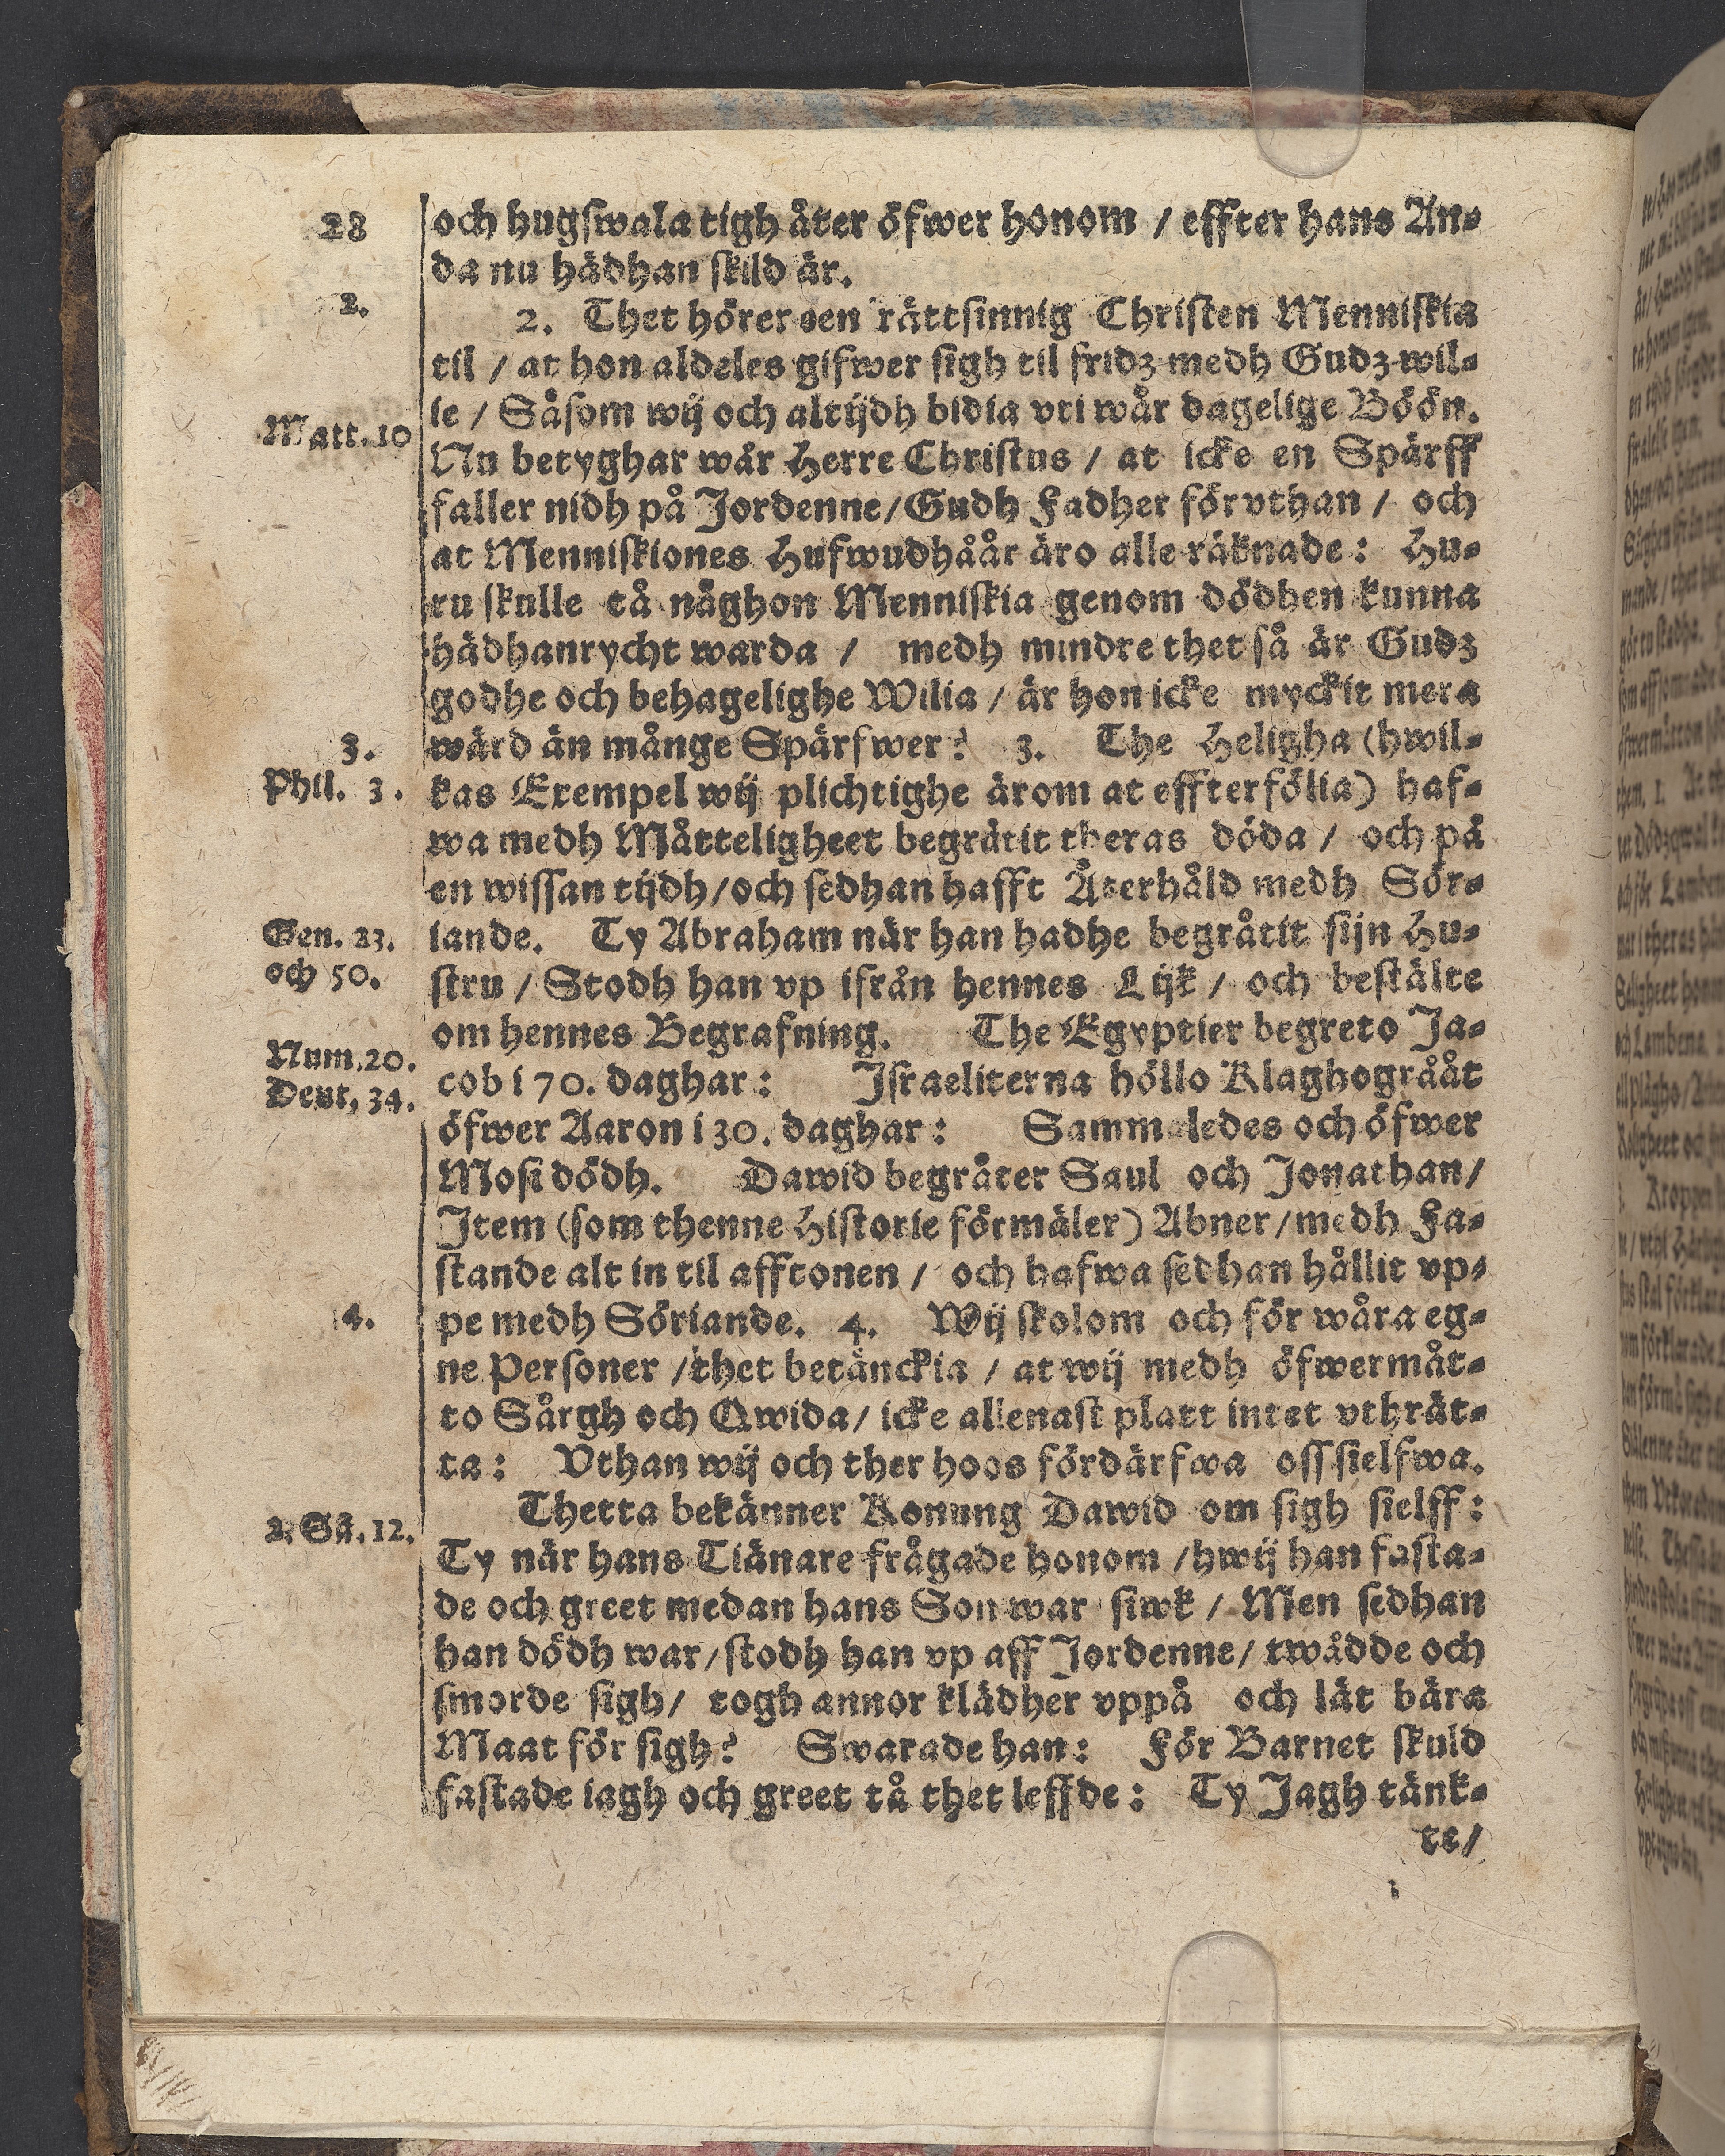 28
och hugswala tigh åter öfwer honom / effter hans An-
da nu hädhan skild är.
2.
2. Thet hörer een rättsinnig Christen Menniskia
til / at hon aldeles gifwer sigh til fridz medh Gudz wil-
ie / Såsom wij och altijdh bidia vti wår dagelige Böön.
Matt. 10
Nu betyghar wår Herre Christus / at icke en Spärff
faller nidh på Jordenne / Gudh Fadher förvthan / och
at Menniskiones Hufwudhåår äro alle räknade: Hu-
ru skulle tå någhon Menniskia genom dödhen kunna
hädhanrycht warda / medh mindre thet så är Gudz
godhe och behagelighe Wilia / är hon icke myckit mera
3.
wärd än månge Spärfwer? 3. The Heligha (hwil-
Phil. 3.
kas Exempel wij plichtighe ärom at effterfölia) haf-
wa medh Måtteligheet begråtit theras döda / och på
en wissan tijdh / och sedhan hafft Återhåld medh Sör-
Gen. 23.
iande. Ty Abraham när han hadhe begråtit sijn Hu-
och 50.
stru / Stodh han vp ifrån hennes Lijk / och bestälte
om hennes Begrafning. The Egyptier begreto Ja-
Num. 20.
cob i 70. daghar: Israeliterna höllo Klaghogrååt
Deut. 34.
öfwer Aaron i 30. daghar: Sammaledes och öfwer
Mosi dödh. Dawid begråter Saul och Jonathan /
Item (som thenne Historie förmäler) Abner / medh Fa-
stande alt in til afftonen / och hafwa sedhan hållit vp-
4.
pe medh Söriande. 4. Wij skolom och för wåra eg-
ne Personer / thet betänckia / at wij medh öfwermåt-
to Sårgh och Qwida / icke allenast platt intet vthrät-
ta: Vthan wij och ther hoos fördärfwa oss sielfwa.
Thetta bekänner Konung Dawid om sigh sielff:
2. Sã. 12.
Ty när hans Tiänare frågade honom / hwij han fasta-
de och greet medan hans Son war siwk / Men sedhan
han dödh war / stodh han vp aff Jordenne / twådde och
smorde sigh / togh annor klädher vppå och lät bära
Maat för sigh? Swarade han: För Barnet skuld
fastade iagh och greet tå thet leffde: Ty Jagh tänk-
te /